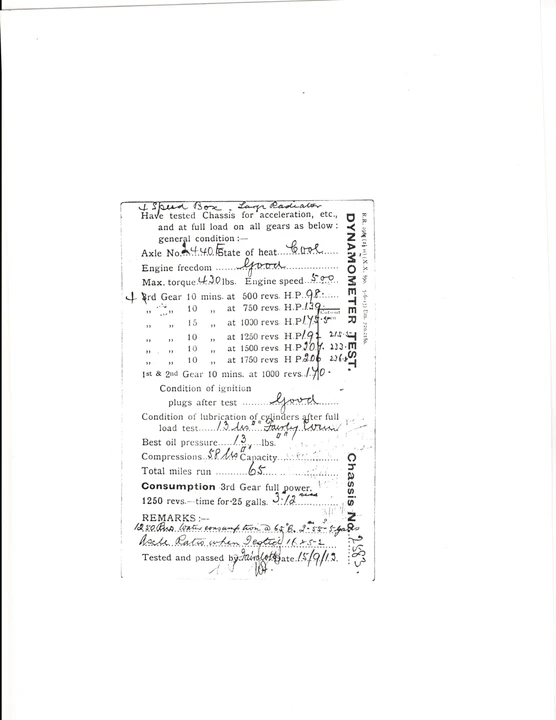 4 Speed Box, Large Radiator
Have tested Chassis for acceleration, etc.,
and at full load on all gears as below :
general condition :—
Axle No. 2440 E State of heat Cool
Engine freedom Good
Max. torque 430 lbs. Engine speed 500
4 3rd Gear 10 mins. at 500 revs. H.P. 98.
„ „ 10 „ at 750 revs. H.P. 139
„ „ 15 „ at 1000 revs. H.P. 175.5
„ „ 10 „ at 1250 revs. H.P. 192
„ „ 10 „ at 1500 revs. H.P. 207.
„ „ 10 „ at 1750 revs. H.P. 206
1st & 2nd Gear 10 mins. at 1000 revs. 170.
Condition of ignition
plugs after test Good
Condition of lubrication of cylinders after full
load test 13 lbs □" Fairly Even
Best oil pressure 13 lbs. □"
Compressions 58 lbs □" Capacity
Total miles run 65
Consumption 3rd Gear full power.
1250 revs.—time for ·25 galls. 3-12 mins
REMARKS :—
1250 Revs Water consumption @ 65°
Axle Ratio when Tested 16 x 52
Tested and passed by Date 15/9/13.
DYNAMOMETER TEST.
Chassis No. 2583.